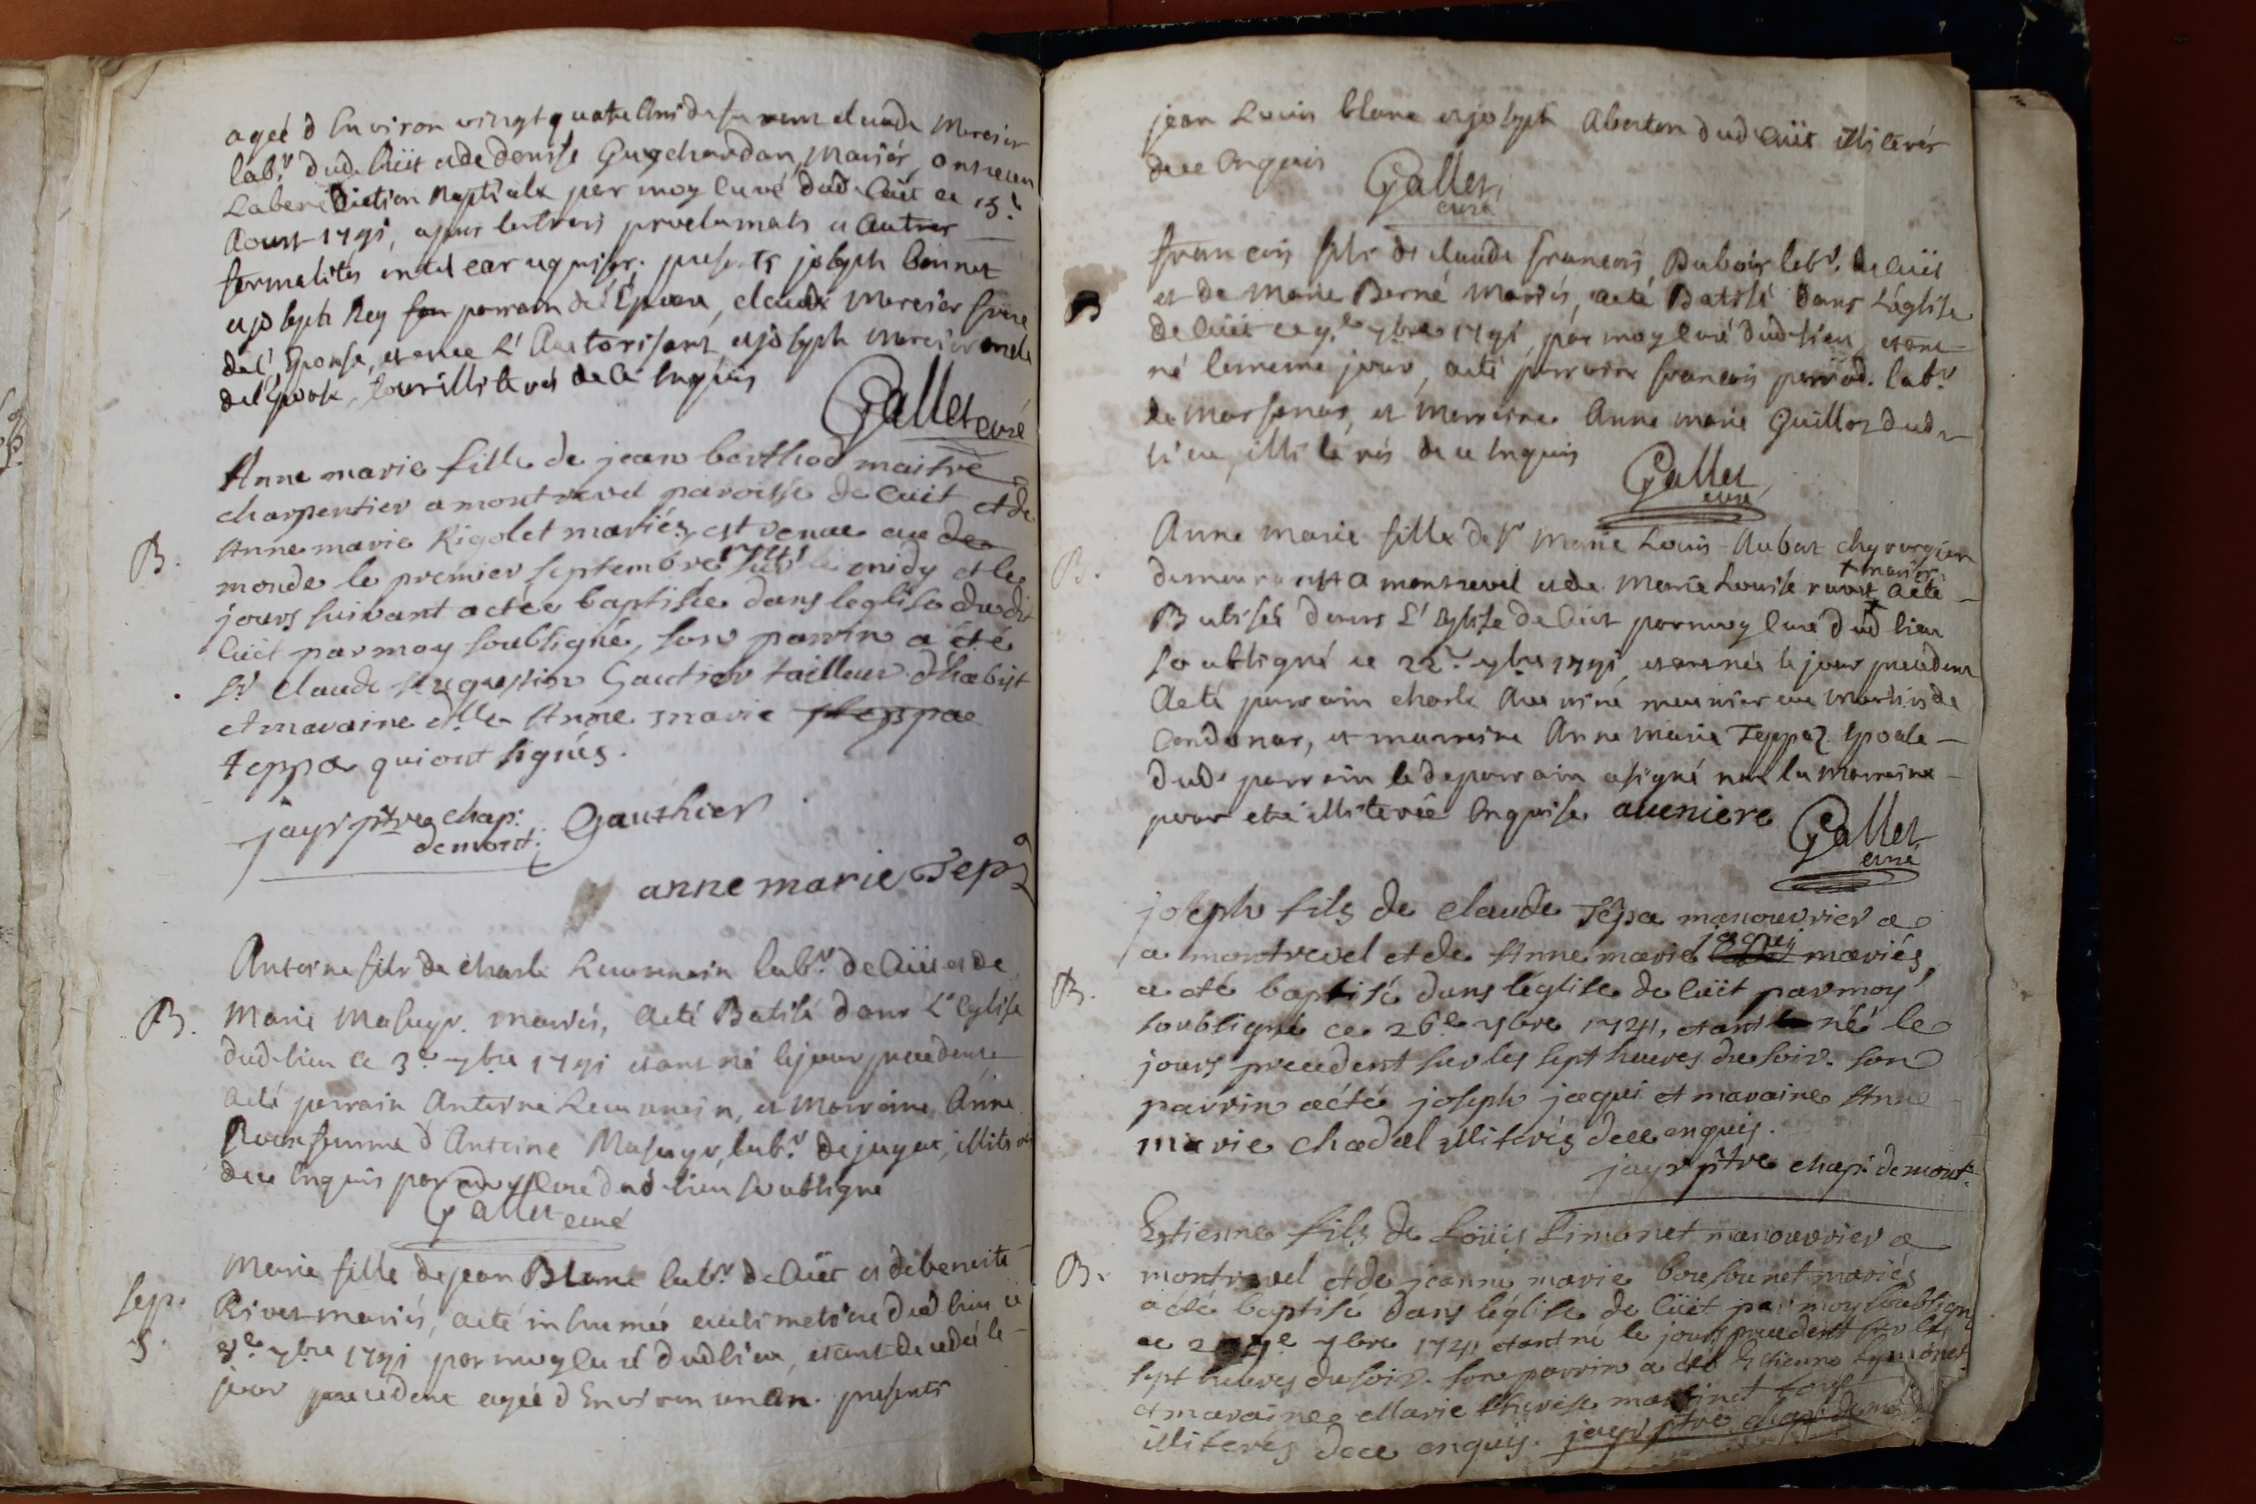 ageé d Environ vingt quatre Ans de feu claude Mercier
labr. dud. Cuit et de denise Guychardan, Mariés, ont receu
La benediction Nuptiale par moy Curé dud. Cuit ce 15e
Aoust 1741, apres les trois proclamats et Autres
formalités en tel cas requises. presents joseph bonnet
et joseph Rey parrain de l'Epoux, claude Mercier frere
de l'Epouse, et L'Autorisant, et joseph mercier oncle
de l'Epouse, tous illiterés de ce Enquis
Gallet curé
Anne marie fille de jean berthod maitre
charpentier a montrevel paroisse de Cuit et de
B. Anne marie Rigolet mariés, est venue au
monde le premier septembre 1741 midy et le
jours suivant a étée baptisée dans leglise dudit
Cuit par moy soubsigné, son parrin a été
Sr. Claude Gautier tailleur d'habit
et maraine dlle Anne marie
teppa qui ont signés.
jayr ptre chap: demont: Gauthier
anne marie Tepa
Antoine fils de charle labr. de Cuit et de
B. Marie Masuyr. mariés, a eté Batisé dans L'Eglise
dud. lieu ce 3e 7bre 1741 etant né le jour precedent
a eté parrain Antoine et Marraine Anne
femme d'Antoine Masuyr, labr. de jayat, illiterés
de ce Enquis par moy Curé dud lieu soubsigné
Gallet curé
Marie fille de jean Blanc labr. de Cuit et de benoite
Sep. Rivet mariés, a eté inhumée au cimetiere dud lieu ce
S. 7bre 1741 par moy curé dud lieu, etant decedée le
jour precedent ageé d Environ un an. presents
jean Louis blanc et joseph Aberton dud Cuit illiterés
de ce Enquis
Gallet,
curé
francois fils de claude francois Dubois labr. de Cuit
B et de Marie Berné Mariés, a eté Batisé dans L'église
de Cuit ce 9e 7bre 1741, par moy Curé dud. lieu, etant
né le meme jour, a eté parrain francois labr.
de Marsonas, et Marraine Anne marie Guillot dud.
lieu, illiterés de ce Enquis
Gallet,
curé
Anne Marie fille de Sr Marie Louis Aubat chyrurgien
B. demeurant a montrevel et de Marie Louise + mariés a eté
Batisée dans L'Eglise de Cuit par moy Curé dud lieu
soubsigné ce 22e 7bre 1741, etant née le jour precedent
a eté parrain charle meunier au de
et marraine Anne Marie Teppaz Epouse
dud. parrain led. parrain a signé non la marraine
pour etre illiterée Enquise aveniere
Gallet
curé
joseph fils de claude Tepa manouvrier a
a montrevel et de Anne marie jaqui mariés
B. a eté baptisé dans l'église de Cuit par moy
soubsigné ce 26e 7bre 1741, etant né le
jours precedent sur les sept heures du soir. son
parrin a été joseph jaqui et maraine Anne
marie chadel illiterés de ce enquis.
jayr ptre chap: demont:
Estienne fils de Loüis Simonet manouvrier a
B. montrevel et de jeanne marie bousounet mariés
a été baptisé dans l'église de Cuit par moy soubsigné
ce 7bre 1741 etant né le jours precedent sur les
sept heures du soir. son parrin a été Estienne Symonet
et maraine Marie therese martinet tous
illiterés de ce enquis. jayr ptre chap: demont